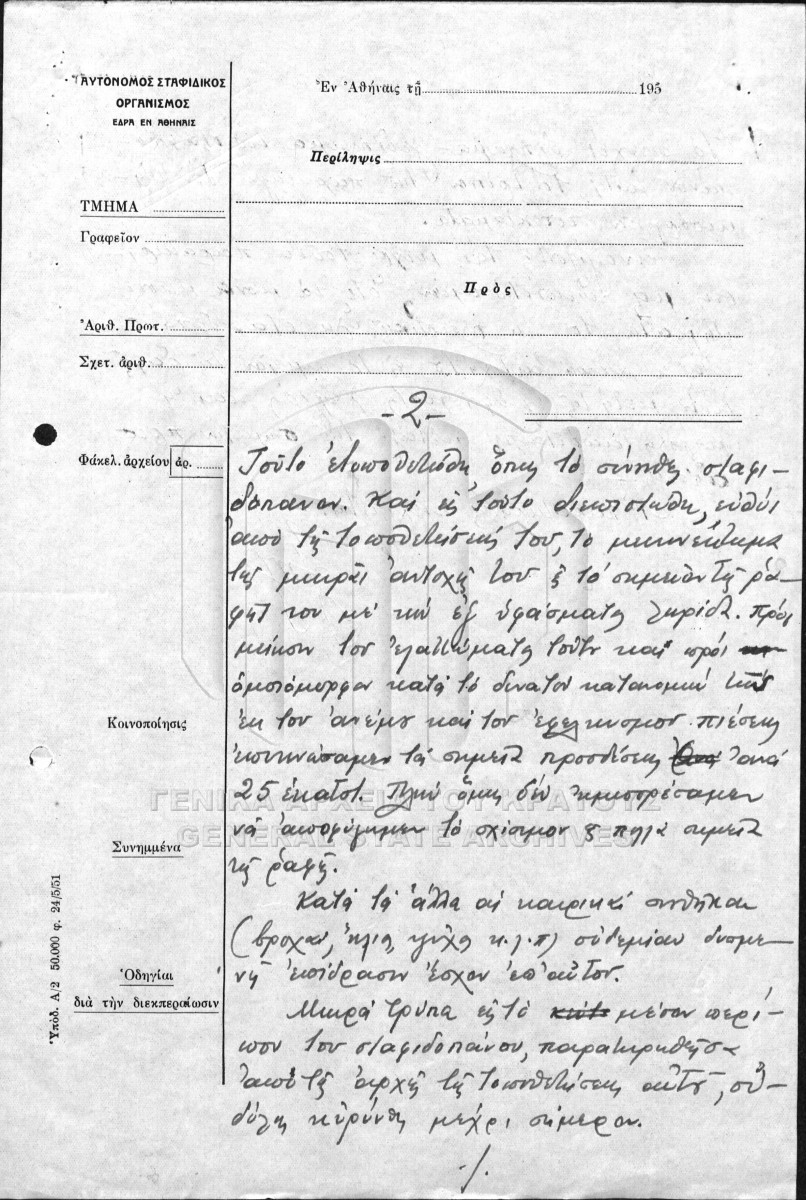 ΑΥΤΟΝΟΜΟΣ ΣΤΑΦΙΔΙΚΟΣ
ΟΡΓΑΝΙΣΜΟΣ
ΕΔΡΑ ΕΝ ΑΘΗΝΑΙΣ
Ἐν Ἀθήναις τῇ 195
Περίληψις
ΤΜΗΜΑ
Γραφεῖον
Πρὸς
Ἀριθ. Πρωτ.
Σχετ. ἀριθ.
-2-
Φάκελ. ἀρχείου ἀρ.
Τοῦτο ἐτοποθετήθη, ὅπως τὸ σύνηθες σταφι-
δόπανον. Καὶ εἰς τοῦτο διεπιστώθη, εὐθύς
ἀπὸ τῆς τοποθετήσεώς του, τὸ μειονέκτημα
τῆς μικρᾶς ἀντοχῆς του εἰς τὸ σημεῖον τῆς ρα-
φῆς του μὲ τὴν ἐξ ὑφάσματος λωρίδα. Πρὸς
μείωσιν τοῦ ἐλαττώματος τούτου καὶ πρὸς
ὁμοιόμορφον κατὰ τὸ δυνατὸν κατανομὴν τῆς
ἐκ τοῦ ἀνέμου καὶ τοῦ ἐφελκυσμοῦ πιέσεως
ἐπυκνώσαμεν τὰ σημεῖα προσδέσεως ἀνὰ
25 ἑκατοστ. Πλὴν ὅμως δὲν ἠμπορέσαμεν
νὰ ἀποφύγωμεν τὸ σχίσιμον εἰς πολλὰ σημεῖα
τῆς ραφῆς.
Κατὰ τὰ ἄλλα αἱ καιρικαὶ συνθῆκαι
(βροχαί, ἥλιος, ψῦχος κ.λ.π) οὐδεμίαν δυσμε-
νῆ ἐπίδρασιν ἔσχον ἐπ' αὐτοῦ.
Μικρὰ τρύπα εἰς τὸ μέσον περί-
που τοῦ σταφιδοπάνου, παρατηρηθεῖσα
ἀπὸ τῆς ἀρχῆς τῆς τοποθετήσεως αὐτοῦ, οὐ-
δόλως ηὐρύνθη μέχρι σήμερον.
./.
Κοινοποίησις
Συνημμένα
Ὁδηγίαι
διὰ τὴν διεκπεραίωσιν
Ὑπόδ. Α/2 50.000 φ. 24/5/51
ΓΕΝΙΚΑ ΑΡΧΕΙΑ ΤΟΥ ΚΡΑΤΟΥΣ
GENERAL STATE ARCHIVES